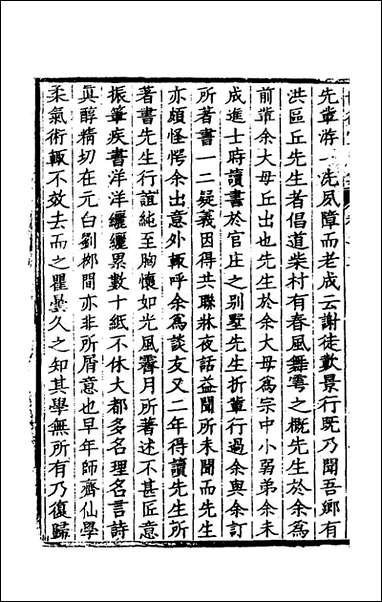 先輩游一洗夙障而老成云謝徒數景行既乃聞吾鄉有
洪區丘先生者倡道柴村有春風舞雩之概先生於余爲
前輩余大母丘出也先生於余大母爲宗中小弱弟余未
成進士時讀書於官庄之别墅先生折輩行過余與余訂
所著書一二疑義因得共聯牀夜話益聞所未聞而先生
亦頗怪愕余出意外輒呼余爲談友又二年得讀先生所
著書先生行誼純至胸懷如光風霽月所著述不甚匠意
振筆疾書洋洋纚纚累數十紙不休大都多名理名言詩
真醇精切在元白劉柳間亦非所屑意也早年師齊仙學
柔氣術輒不效去而之瞿曇久之知其學無所有乃復歸